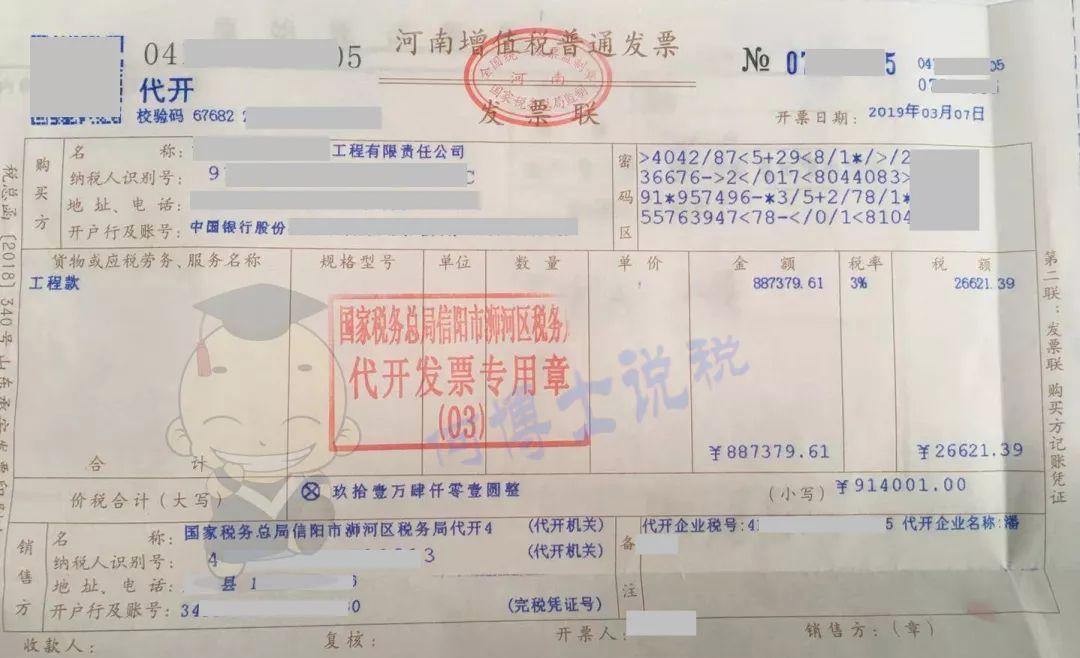 河南增值税普通发票
发票联
全国统一发票监制章
河南
国家税务总局监制
04 05
代开
校验码 67682 2
№ 07 5
04 05
07
开票日期: 2019年03月07日
税总函〔2018〕340号
购买方
名 称: 工程有限责任公司
纳税人识别号: 9 C
地 址、电 话:
开户行及账号: 中国银行股份
密码区
>4042/87<5+29<8/1*/>/2
36676->2</017<8044083>
91*957496-*3/5+2/78/1*
55763947<78-</0/1<8104
货物或应税劳务、服务名称 规格型号 单位 数 量 单 价 金 额 税率 税 额
工程款 887379.61 3% 26621.39
国家税务总局信阳市浉河区税务
代开发票专用章
(03)
博士说税
合 计 ¥887379.61 ¥26621.39
价税合计(大写) ⊗ 玖拾壹万肆仟零壹圆整 (小写) ¥914001.00
第二联:发票联 购买方记账凭证
销售方
名 称: 国家税务总局信阳市浉河区税务局代开4 (代开机关)
纳税人识别号: 4 3 (代开机关)
地 址、电 话: 县 1 6
开户行及账号: 34 30 (完税凭证号)
备注
代开企业税号:41 5 代开企业名称:潘
收款人: 复核: 开票人: 销售方:(章)